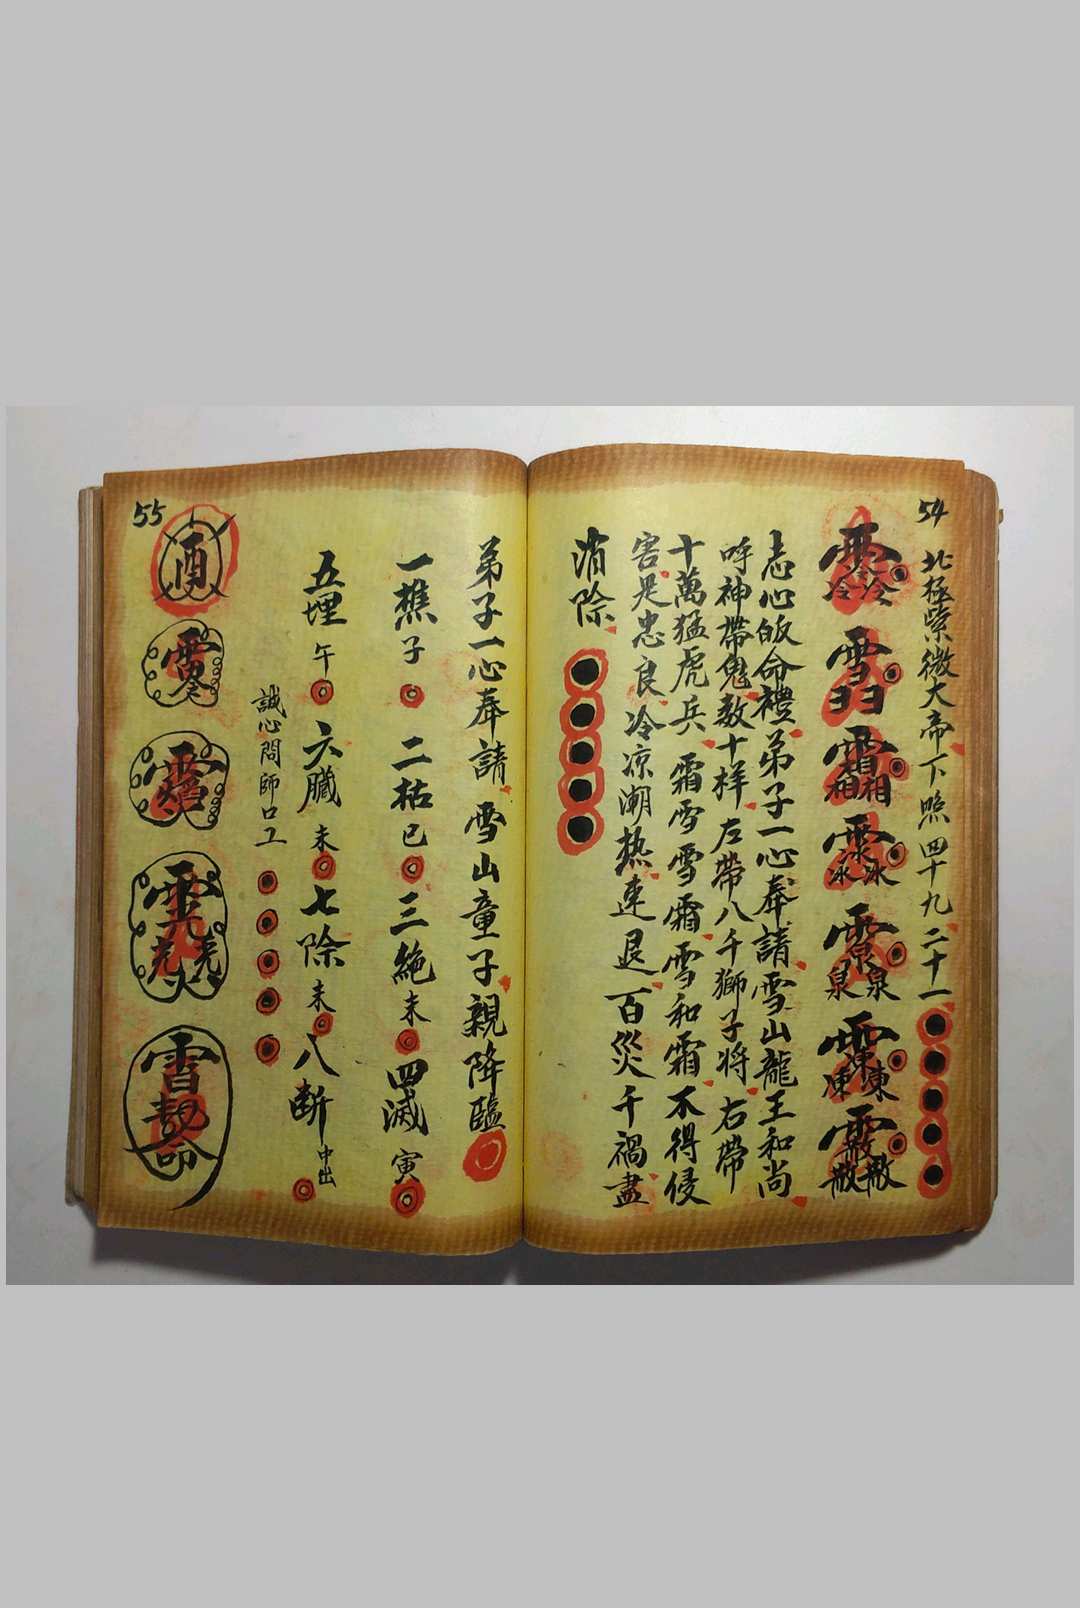 54
北極紫微大帝下照四十九 二十一
志心皈命禮弟子一心奉請雪山龍王和尚
呼神帶鬼数十样左帶八千獅子将右帶
十萬猛虎兵霜雪雪霜雪和霜不得侵
害是忠良冷凉潮热速退百災千禍盡
消除
弟子一心奉請雪山童子親降臨
一樵子 二枯巳 三絕未 四滅寅
五埋午 六臟未 七除未 八断中出
誠心問師口工
55
酉